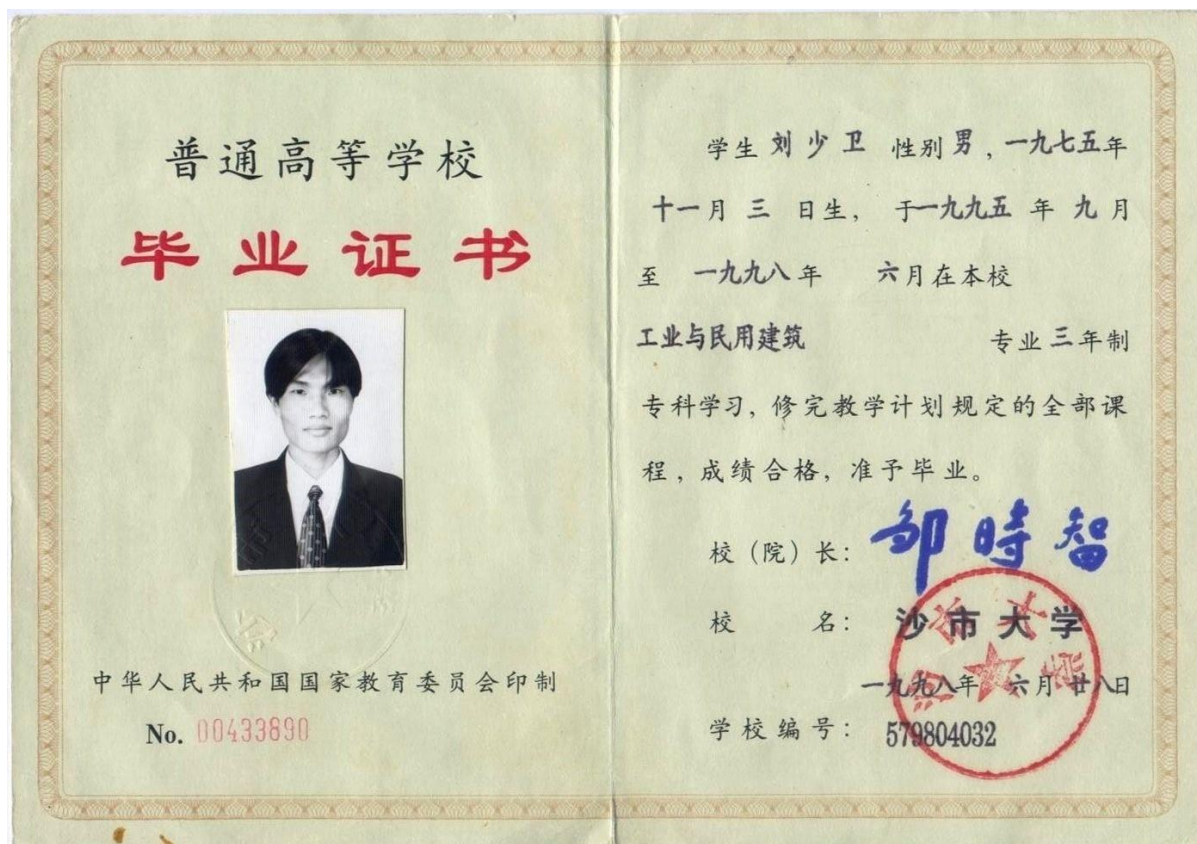 普通高等学校
毕业证书
中华人民共和国国家教育委员会印制
No. 00433890
学生 刘少卫 性别 男，一九七五年
十一月 三 日生， 于一九九五 年 九 月
至 一九九八 年 六月在本校
工业与民用建筑 专业 三 年 制
专科学习，修完教学计划规定的全部课
程，成绩合格，准予毕业。
校（院）长：邹時智
校 名：沙市大学
一九九八年 六月廿八日
学校编号：579804032